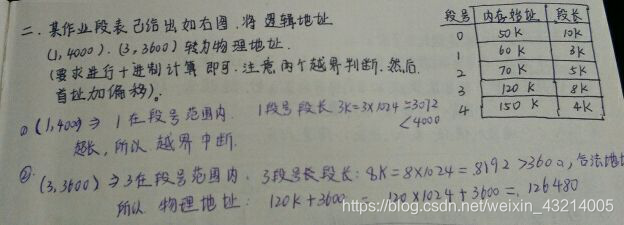 二. 某作业段表已给出如右图. 将逻辑地址
(1,4000). (3,3600) 转为物理地址.
(要求进行十进制计算即可. 注意两个越界判断. 然后
首址加偏移)。
段号 内存始址 段长
0 50K 10K
1 60K 3K
2 70K 5K
3 120K 8K
4 150K 4K
① (1,400) ⇒ 1在段号范围内. 1段号段长 3K=3×1024=3072
<4000
超长, 所以 越界中断.
② (3,3600) ⇒ 3在段号范围内. 3段号长段长: 8K=8×1024=8192>3600, 合法地址
所以 物理地址: 120K+3600 = 120×1024+3600=126480
https://blog.csdn.net/weixin_43214005